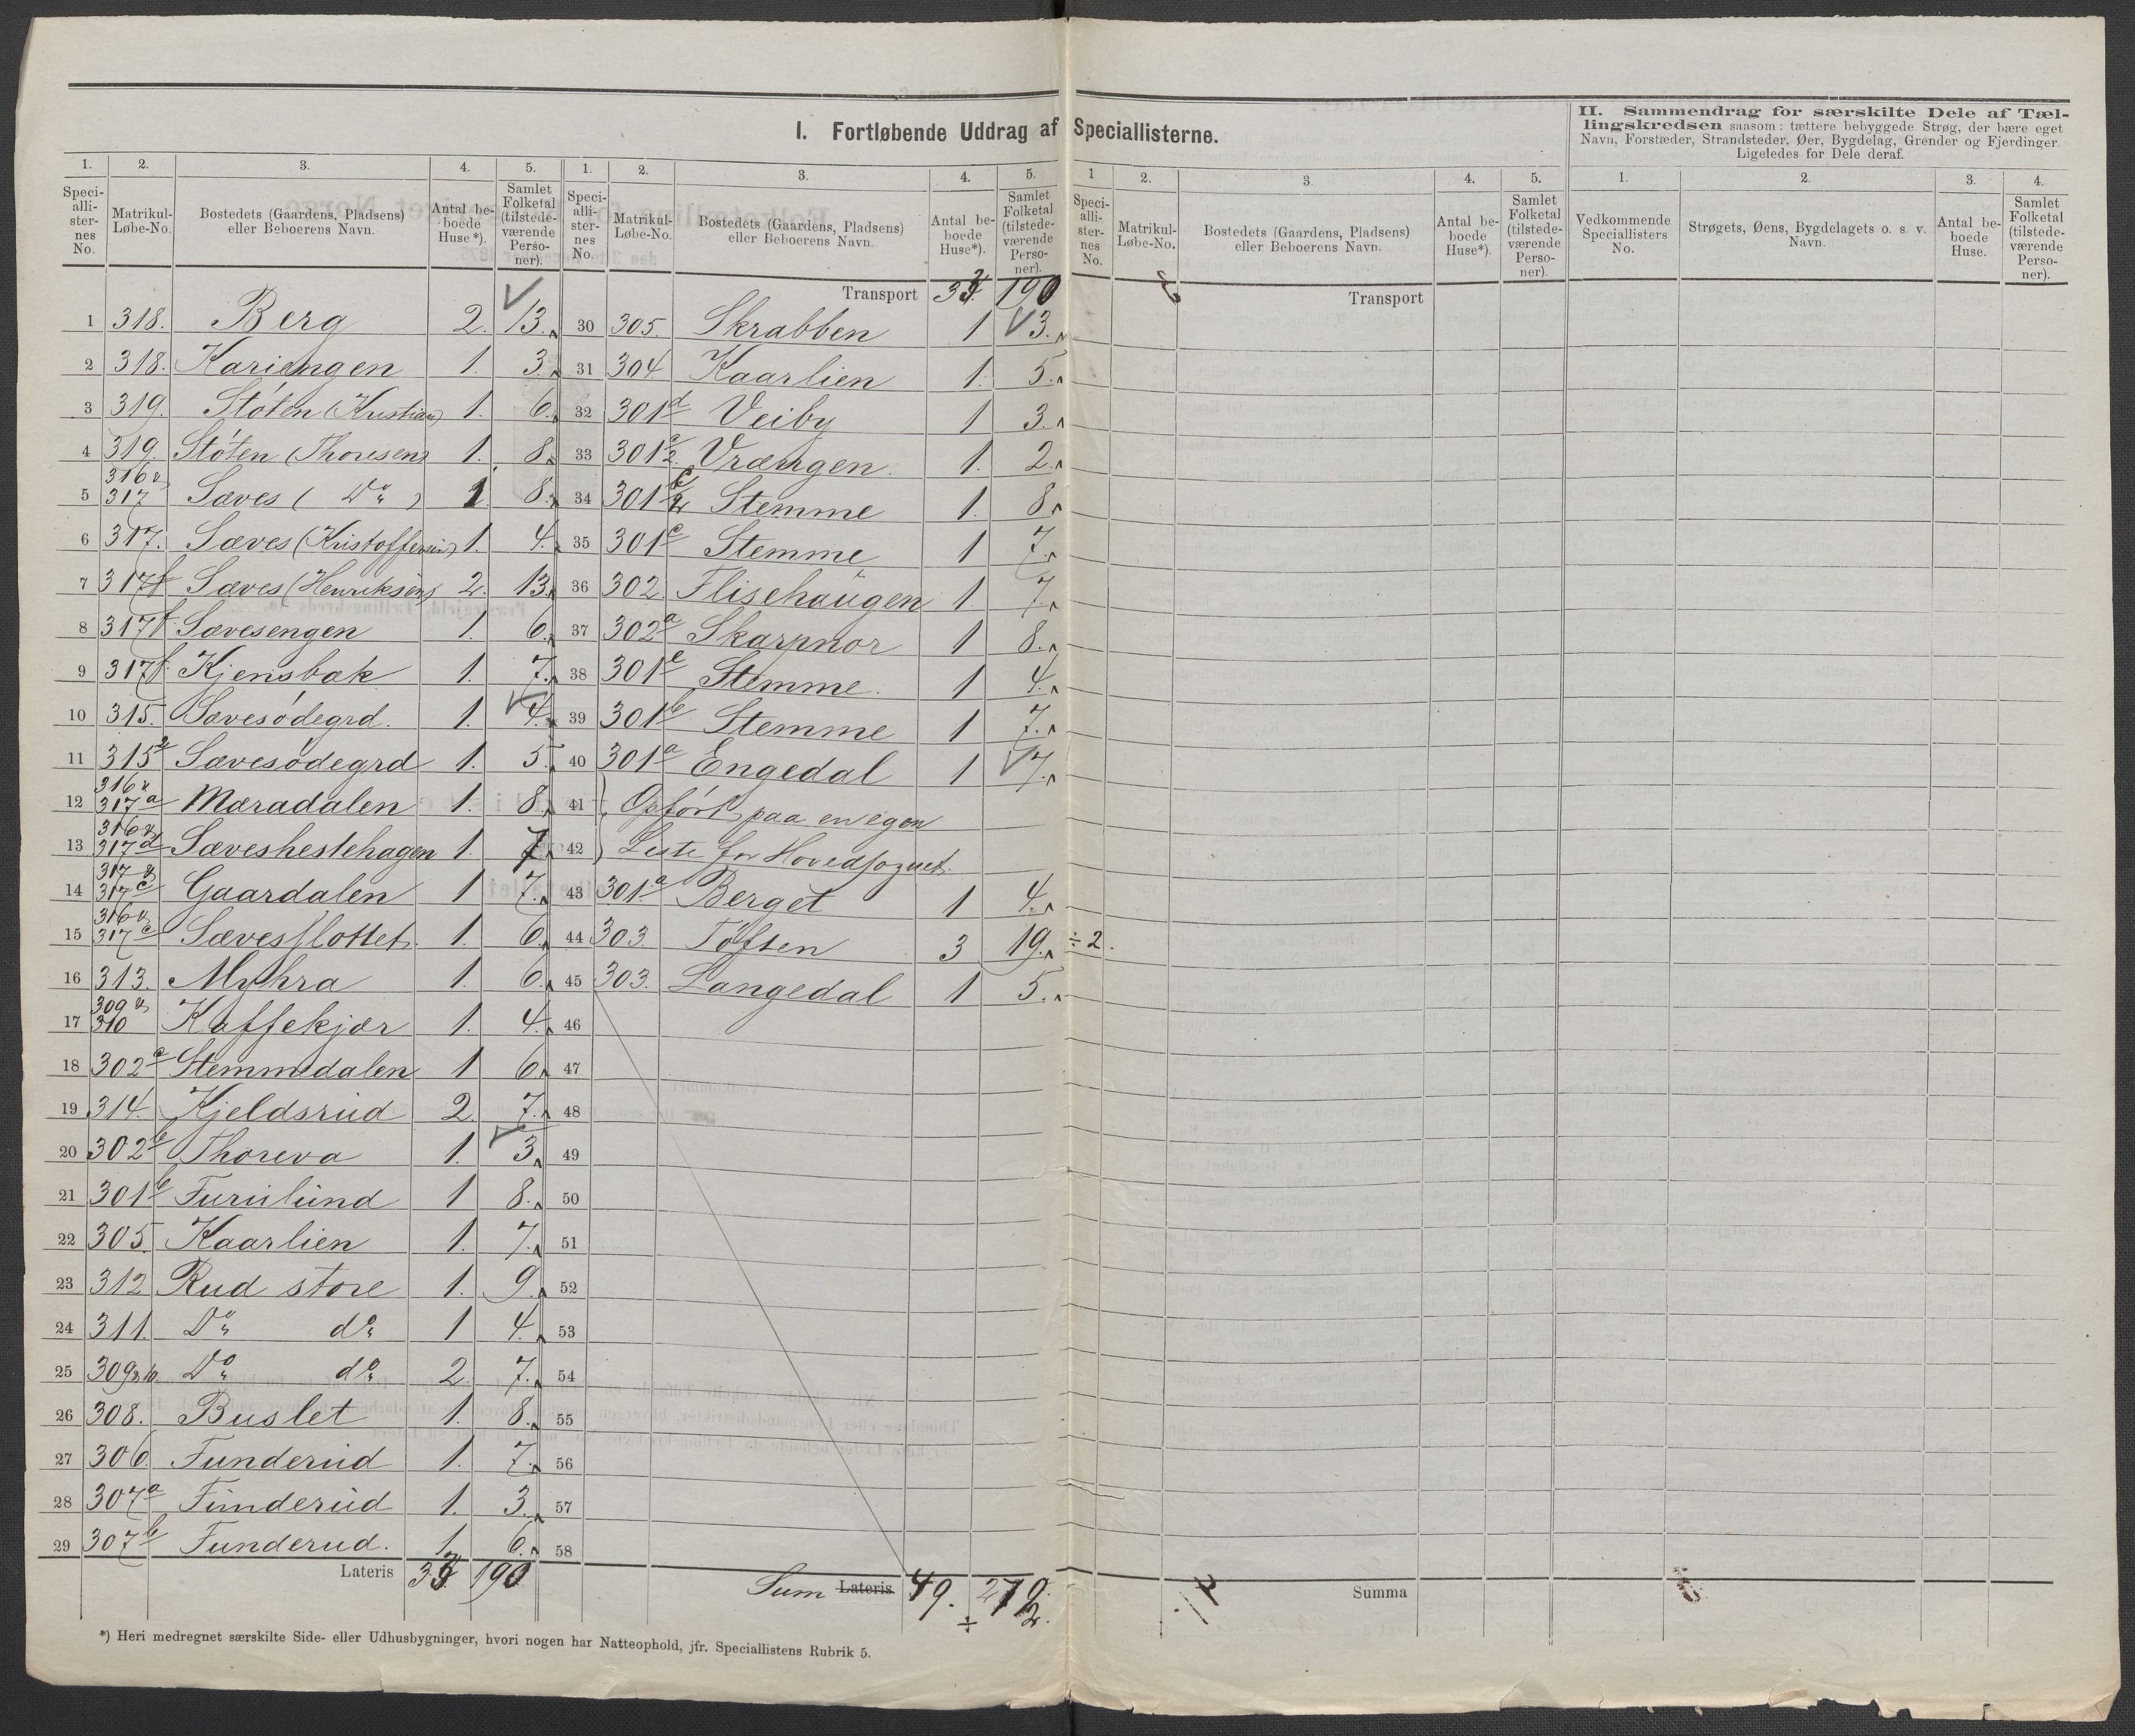 I. Fortløbende Uddrag af Speciallisterne.
II. Sammendrag for særskilte Dele af Tællingskredsen saasom: tættere bebyggede Strøg, der bære eget Navn, Forstæder, Strandsteder, Øer, Bygdelag, Grender og Fjerdinger. Ligeledes for Dele deraf.
1. 2. 3. 4. 5.
Speciallisternes No. Matrikul-Løbe-No. Bostedets (Gaardens, Pladsens) eller Beboerens Navn. Antal beboede Huse*). Samlet Folketal (tilstedeværende Personer).
1 318. Berg 2. 13.
2 318. Kariengen 1. 3.
3 319. Støten (Kristian) 1. 6.
4 319. Støten (Thoresen) 1. 8.
5 316 & 317 Sæves ( Do ) 1 8.
6 317. Sæves (Kristoffersen) 1. 4.
7 317f Sæves (Henriksen) 2. 13.
8 317f Sævesengen 1. 6.
9 317f. Kjensbak 1. 7.
10 315. Sævesødegrd. 1. 4.
11 315 Sævesødegrd 1. 5.
12 316 & 317a Maradalen 1. 8.
13 316 & 317d Sæveshestehagen 1. 7.
14 317c Gaardalen 1 7.
15 316 & 317e Sævesflottet 1. 6.
16 313. Myhra 1. 6.
17 309 & 310 Kaffekjær 1. 4.
18 302c Stemmedalen 1 6.
19 314. Kjeldsrud 2. 7.
20 302b Thoreva 1. 3.
21 301b Furulund 1 8.
22 305. Kaarlien 1. 7.
23 312 Rud store 1. 9.
24 311. Do do 1 4.
25 309 Do do 2. 7.
26 308. Buslet 1. 8.
27 306 Funderud 1. 7.
28 307a Funderud 1. 3.
29 307b Funderud. 1. 6.
Lateris 33 190
1. 2. 3. 4. 5.
Speciallisternes No. Matrikul-Løbe-No. Bostedets (Gaardens, Pladsens) eller Beboerens Navn. Antal beboede Huse*). Samlet Folketal (tilstedeværende Personer).
Transport 33. 190
30 305. Skrabben 1 3.
31 304 Kaarlien 1. 5.
32 301d Veiby 1 3.
33 301 Vrængen 1. 2.
34 301 Stemme 1. 8.
35 301c Stemme 1 7.
36 302 Flisehaugen 1. 7.
37 302a Skarpnor 1 8.
38 301e Stemme. 1 4.
39 301b Stemme 1 7.
40 301a Engedal 1 7.
41 Opført paa en egen
42 Liste for Hovedsognet.
43 301a Berget 1 4.
44 303. Töften 3 19. ÷ 2.
45 303. Langedal 1 5.
46
47
48
49
50
51
52
53
54
55
56
57
58
Sum Lateris 49. 279.
÷ 2.
1 2. 3. 4. 5.
Speciallisternes No. Matrikul-Løbe-No. Bostedets (Gaardens, Pladsens) eller Beboerens Navn. Antal beboede Huse*). Samlet Folketal (tilstedeværende Personer).
Transport
Summa
1. 2. 3. 4.
Vedkommende Speciallisters No. Strøgets, Øens, Bygdelagets o. s. v. Navn. Antal beboede Huse. Samlet Folketal (tilstedeværende Personer).
*) Heri medregnet særskilte Side- eller Udhusbygninger, hvori nogen har Natteophold, jfr. Speciallistens Rubrik 5.